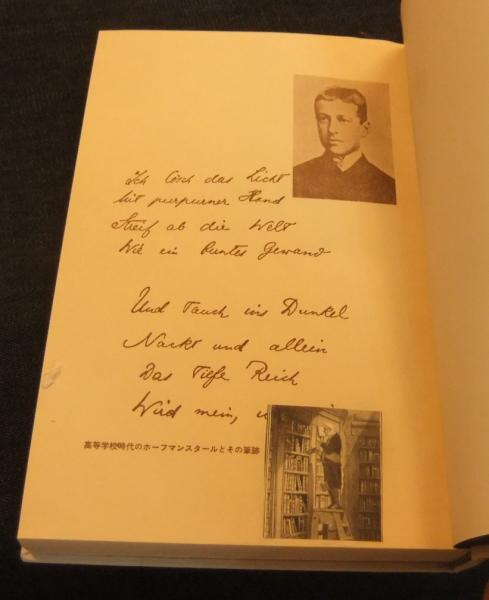 Ich lösch das Licht
Mit purpurner Hand
Streif ab die Welt
Wie ein buntes Gewand
Und tauch ins Dunkel
Nackt und allein
Das tiefe Reich
Wird mein,
高等学校時代のホーフマンスタールとその筆跡